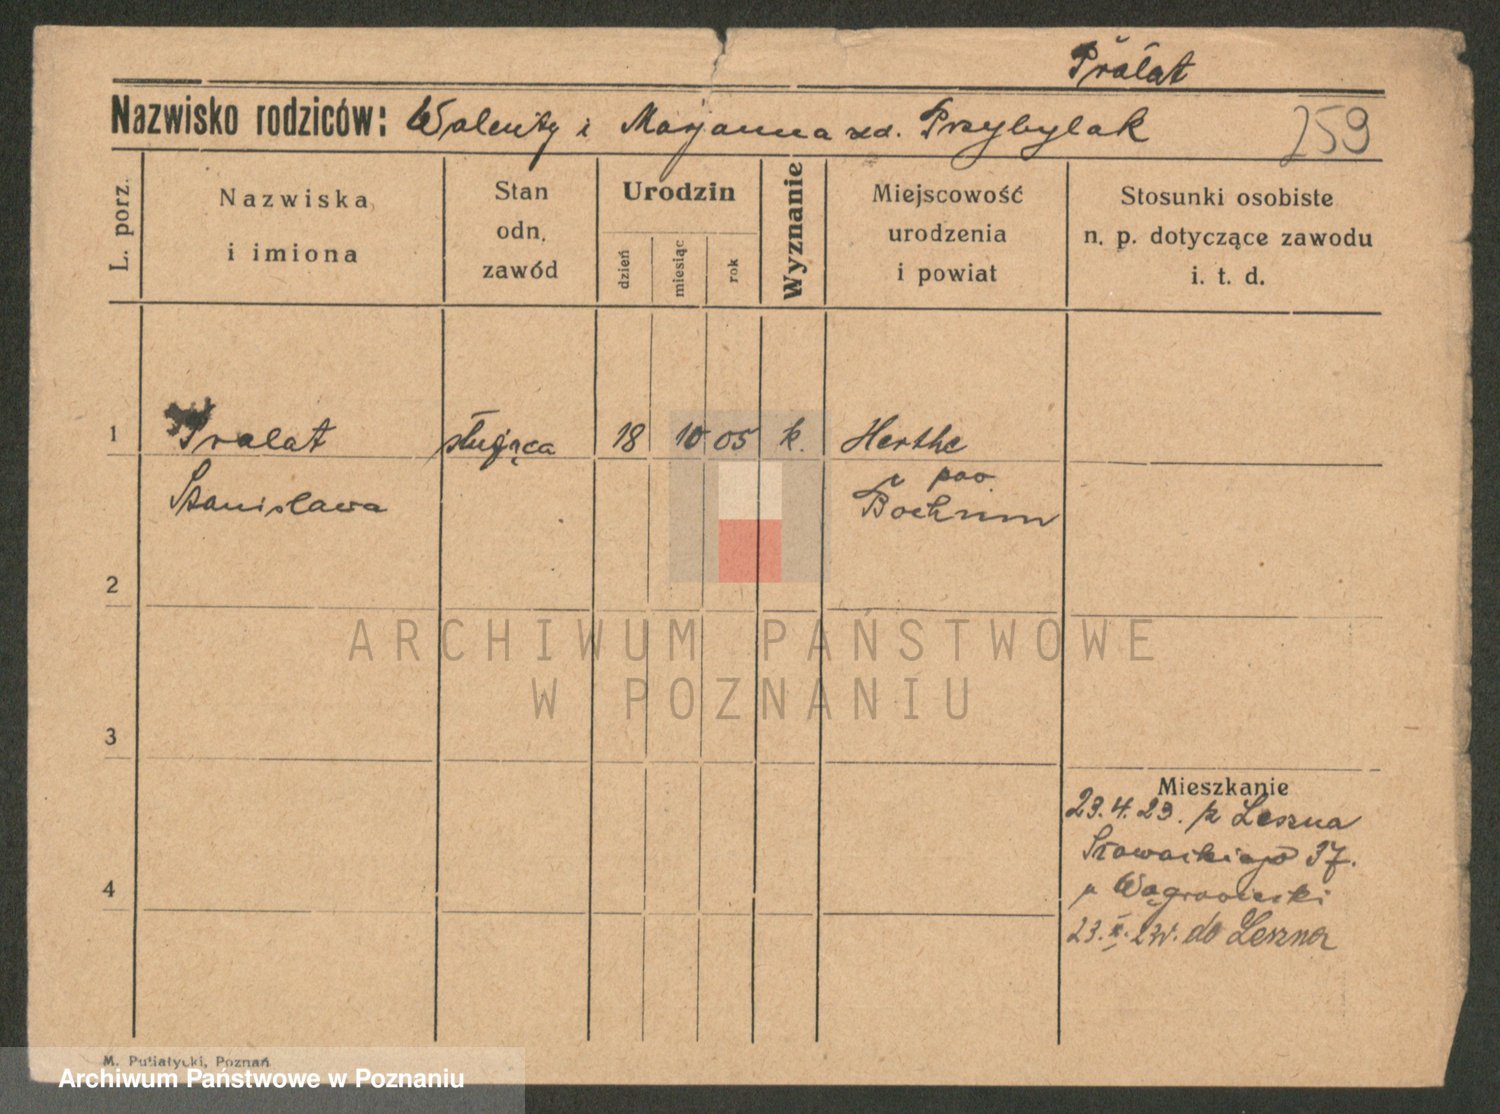 Prałat
Nazwisko rodziców: Walenty i Marjanna zd. Przybylak
259
L. porz.
Nazwiska
i imiona
Stan
odn.
zawód
Urodzin
dzień
miesiąc
rok
Wyznanie
Miejscowość
urodzenia
i powiat
Stosunki osobiste
n. p. dotyczące zawodu
i. t. d.
1
Prałat
Stanisława
służąca
18 10 05 k.
Herthe
pow.
Bochum
2
3
4
Mieszkanie
23.4.23. z Leszna
Słowackiego 37.
u Wągrowiecki
23. X. 23r. do Leszna
ARCHIWUM PAŃSTWOWE
W POZNANIU
M. Putiatycki, Poznań
Archiwum Państwowe w Poznaniu